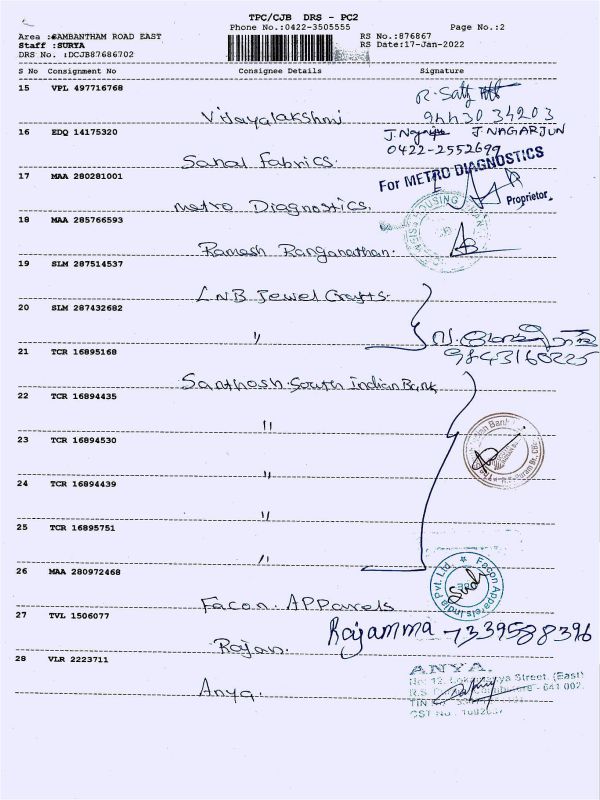 TPC/CJB DRS - PC2
Phone No.:0422-3505555
Page No.:2
Area :SAMBANTHAM ROAD EAST
RS No.:876867
Staff :SURYA
RS Date:17-Jan-2022
DRS No. :DCJB87686702
S No Consignment No Consignee Details Signature
15 VPL 497716768
R. 
Vijayalakshmi
94430 34203
16 EDQ 14175320
J. NAGARJUN
0422-2552699
Sanal Fabrics.
17 MAA 280281001
For METRO DIAGNOSTICS
Proprietor
Metro Diagnostics.
18 MAA 285766593
HOUSING
Ramesh Ranganathan.
19 SLM 287514537
LNB Jewel Crafts.
20 SLM 287432682
"
9843160225
21 TCR 16895168
Santhosh South Indian Bank
22 TCR 16894435
"
23 TCR 16894530
"
24 TCR 16894439
"
25 TCR 16895751
"
26 MAA 280972468
Facon Apparels India Pvt. Ltd
Facon. APParels
27 TVL 1506077
Rajamma 7339588396
Rajan.
28 VLR 2223711
ANYA.
Street, (East)
R.S. Coimbatore - 641 002.
TIN No
CST No.
Anya.